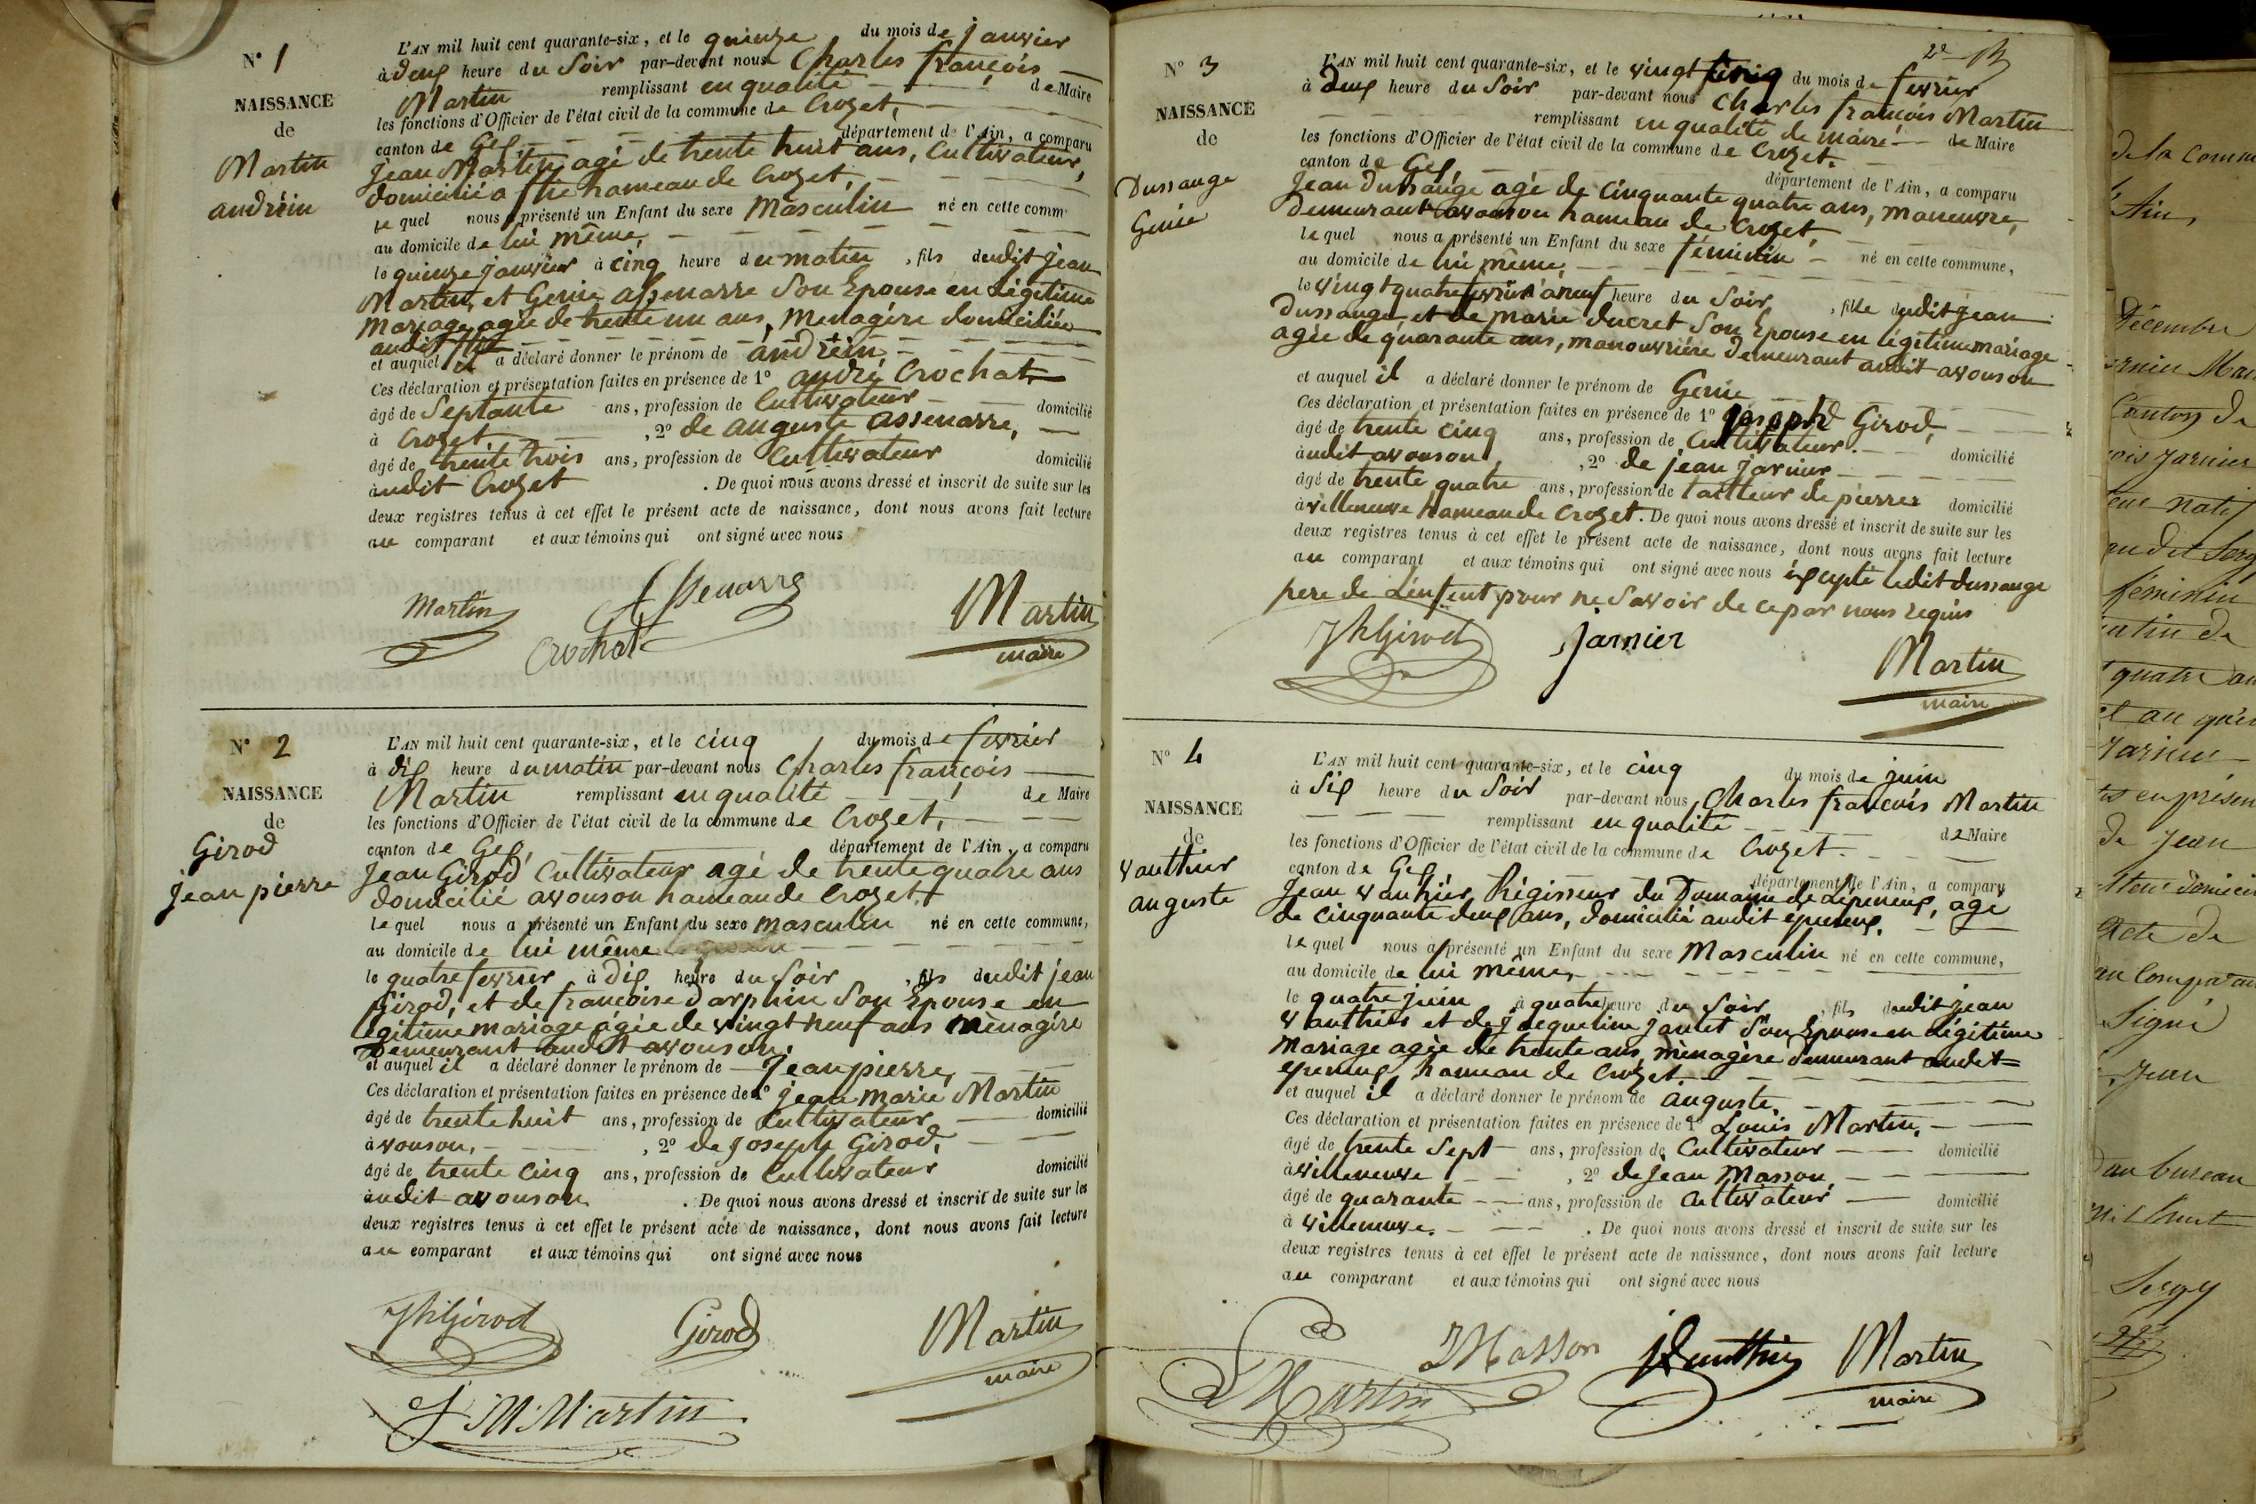 N° 1
NAISSANCE
de
Martin
andréin
L'AN mil huit cent quarante-six, et le quinze du mois de janvier
à deux heure du Soir par-devant nous Charles françois
Martin remplissant en qualité de Maire
les fonctions d'Officier de l'état civil de la commune de Crozet,
canton de Gex, département de l'Ain, a comparu
Jean Martin agé de trente huit ans, Cultivateur,
domicilié a hameau de Crozet,
le quel nous a présenté un Enfant du sexe Masculin né en cette comm
au domicile de lui même,
le quinze janvier à cinq heure du matin, fils dudit jean
Martin, et Genie assenarre Son Epouse en Légitime
Mariage agée de trente un ans, Menagère domiciliée
audit
et auquel il a déclaré donner le prénom de andréin,
Ces déclaration et présentation faites en présence de 1° andré Crochat,
âgé de Septante ans, profession de Cultivateur domicilié
à Crozet, 2° de auguste assenarre,
âgé de trente trois ans, profession de Cultivateur domicilié
audit Crozet. De quoi nous avons dressé et inscrit de suite sur les
deux registres tenus à cet effet le présent acte de naissance, dont nous avons fait lecture
au comparant et aux témoins qui ont signé avec nous
Martin Assenarre Martin
Crochat maire
N° 2
NAISSANCE
de
Girod
jean pierre
L'AN mil huit cent quarante-six, et le cinq du mois de fevrier
à dix heure du matin par-devant nous Charles françois
Martin remplissant en qualité de Maire
les fonctions d'Officier de l'état civil de la commune de Crozet,
canton de Gex, département de l'Ain, a comparu
Jean Girod Cultivateur agé de trente quatre ans
domicilié avouson hameau de Crozet,
le quel nous a présenté un Enfant du sexe masculin né en cette commune,
au domicile de lui même
le quatre fevrier à dix heure du Soir, fils dudit jean
Girod, et de françoise Darphin Son Epouse en
légitime mariage agée de vingt neuf ans mènagère
Demeurant audit avouson.
et auquel il a déclaré donner le prénom de Jean pierre,
Ces déclaration et présentation faites en présence de 1° jean marie Martin
âgé de trente huit ans, profession de Cultivateur domicilié
à vouson, 2° de Joseph Girod,
âgé de trente cinq ans, profession de Cultivateur domicilié
audit avouson. De quoi nous avons dressé et inscrit de suite sur les
deux registres tenus à cet effet le présent acte de naissance, dont nous avons fait lecture
au comparant et aux témoins qui ont signé avec nous
JhGirod Girod Martin
maire
J M Martin
N° 3
NAISSANCE
de
Dussauge
Genie
L'AN mil huit cent quarante-six, et le vingt cinq du mois de fevrier
à deux heure du Soir par-devant nous Charles françois Martin
remplissant en qualité de maire de Maire
les fonctions d'Officier de l'état civil de la commune de Crozet.
canton de Gex département de l'Ain, a comparu
Jean Dussauge agé de cinquante quatre ans, manouvre,
Demeurant avouson hameau de Crozet,
le quel nous a présenté un Enfant du sexe féminin né en cette commune,
au domicile de lui même,
le vingt quatre fevrier à neuf heure du Soir, fille dudit jean
Dussauge, et de marie ducret Son Epouse en légitime mariage
agée de quarante ans, manouvrière demeurant audit avouson
et auquel il a déclaré donner le prénom de Genie
Ces déclaration et présentation faites en présence de 1° joseph Girod,
âgé de trente cinq ans, profession de Cultivateur. domicilié
audit avouson, 2° de jean Jarnier
âgé de trente quatre ans, profession de tailleur de pierres domicilié
à villeneuve hameau de Crozet. De quoi nous avons dressé et inscrit de suite sur les
deux registres tenus à cet effet le présent acte de naissance, dont nous avons fait lecture
au comparant et aux témoins qui ont signé avec nous excepté ledit dussauge
pere de L'enfent pour ne Savoir de ce par nous requis
JhGirod jarnier Martin
maire
N° 4
NAISSANCE
de
vauthier
auguste
L'AN mil huit cent quarante-six, et le cinq du mois de juin
à Six heure du Soir par-devant nous Charles françois Martin
remplissant en qualité de Maire
les fonctions d'Officier de l'état civil de la commune de Crozet.
canton de Gex, département de l'Ain, a comparu
Jean vauthier, Régisseur du Domaine de Lépeneux, agé
de cinquante deux ans, domicilié audit épeneux,
le quel nous a présenté un Enfant du sexe Masculin né en cette commune,
au domicile de lui même,
le quatre juin à quatre heure du Soir, fils dudit jean
vauthier et de Jacqueline Janet Son Epouse en Légitime
Mariage agée de trente ans, mènagère demeurant audit
epeneux hameau de Crozet.
et auquel il a déclaré donner le prénom de auguste.
Ces déclaration et présentation faites en présence de 1° Louis Martin,
âgé de trente Sept ans, profession de Cultivateur domicilié
à villeneuve, 2° de Jean Masson,
âgé de quarante ans, profession de Cultivateur domicilié
à villeneuve. De quoi nous avons dressé et inscrit de suite sur les
deux registres tenus à cet effet le présent acte de naissance, dont nous avons fait lecture
au comparant et aux témoins qui ont signé avec nous
L Martin J Masson J Vauthier Martin
maire
de la comm
Ain,
Décembre
Canton de
Jarnier
natif
féminin
matin de
quatre
et au
Jarnier
en présen
de Jean
Acte de
au Compara
Signé
Jean
au bureau
Sergy